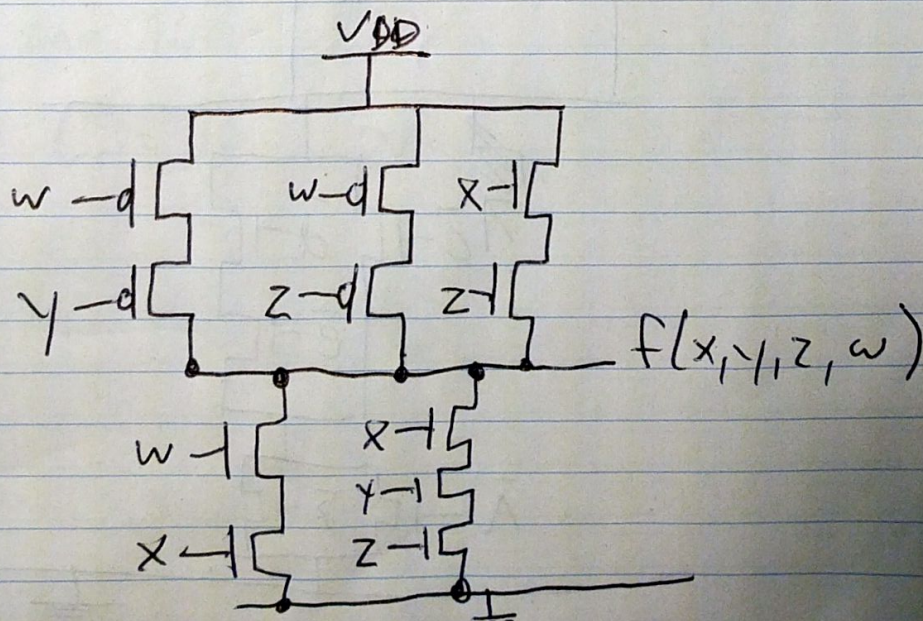 VDD
W W X
Y Z Z
f(x,y,z,w)
W X
Y
X Z